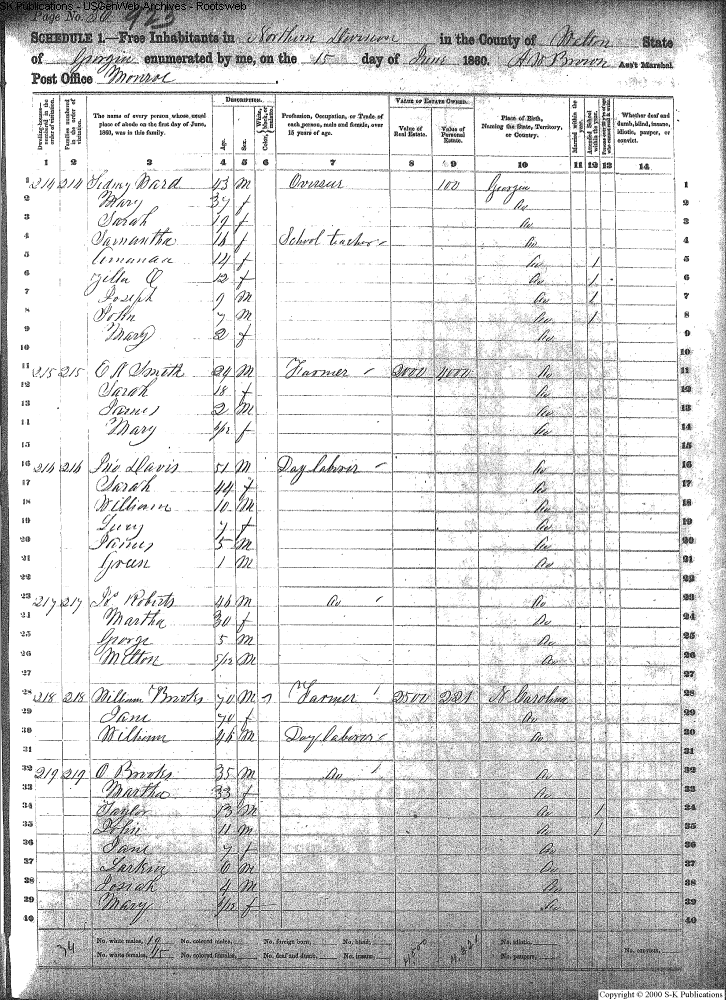 S-K Publications - USGenWeb Archives - Rootsweb
Page No. 30 923
SCHEDULE 1.—Free Inhabitants in Northern Division in the County of Walton State
of Georgia enumerated by me, on the 15 day of June 1860. A W Brown Ass't Marshal.
Post Office Monroe
Dwelling-houses—numbered in the order of visitation.
Families numbered in the order of visitation.
The name of every person whose usual place of abode on the first day of June, 1860, was in this family.
DESCRIPTION.
Age.
Sex.
Color, White, black, or mulatto.
Profession, Occupation, or Trade of each person, male and female, over 15 years of age.
VALUE OF ESTATE OWNED.
Value of Real Estate.
Value of Personal Estate.
Place of Birth, Naming the State, Territory, or Country.
Married within the year.
Attended School within the year.
Whether deaf and dumb, blind, insane, idiotic, pauper, or convict.
1 2 3 4 5 6 7 8 9 10 11 12 13 14
1 214 214 Sidney Ward 43 m Overseer 100 Georgia 1
2 Mary 37 f Do 2
3 Sarah 19 f Do 3
4 Samantha 16 f School teacher Do 4
5 Amanda 14 f Do 1 5
6 12 f Do 1 6
7 Joseph 9 m Do 1 7
8 John 7 m Do 1 8
9 Mary 2 f Do 9
10 10
11 215 215 E A Smith 24 m Farmer 2000 4000 Do 11
12 Sarah 18 f Do 12
13 James 2 m Do 13
14 Mary f Do 14
15 15
16 216 216 Jno Davis 51 m Day laborer Do 16
17 Sarah 44 f Do 17
18 William 10 m Do 18
19 Lucy 7 f Do 19
20 James 5 m Do 20
21 Green 1 m Do 21
22 22
23 217 217 Jos Roberts 46 m Do Do 23
24 Martha 30 f Do 24
25 George 5 m Do 25
26 Milton 5/12 m Do 26
27 27
28 218 218 William Brooks 70 m Farmer 2500 221 N Carolina 28
29 Jane 70 f Do 29
30 William 46 m Day laborer Do 30
31 31
32 219 219 O Brooks 35 m Do Do 32
33 Martha 33 f Do 33
34 Taylor 13 m Do 1 34
35 John 11 m Do 1 35
36 Jane 7 f Do 36
37 Larkin 6 m Do 37
38 Josiah 4 m Do 38
39 Mary f Do 39
40 40
34 No. white males, 19 No. colored males, No. foreign born, No. blind, 4500 4321 No. idiotic,
No. white females, 15 No. colored females, No. deaf and dumb, No. insane, No. paupers, No. convicts,
Copyright © 2000 S-K Publications